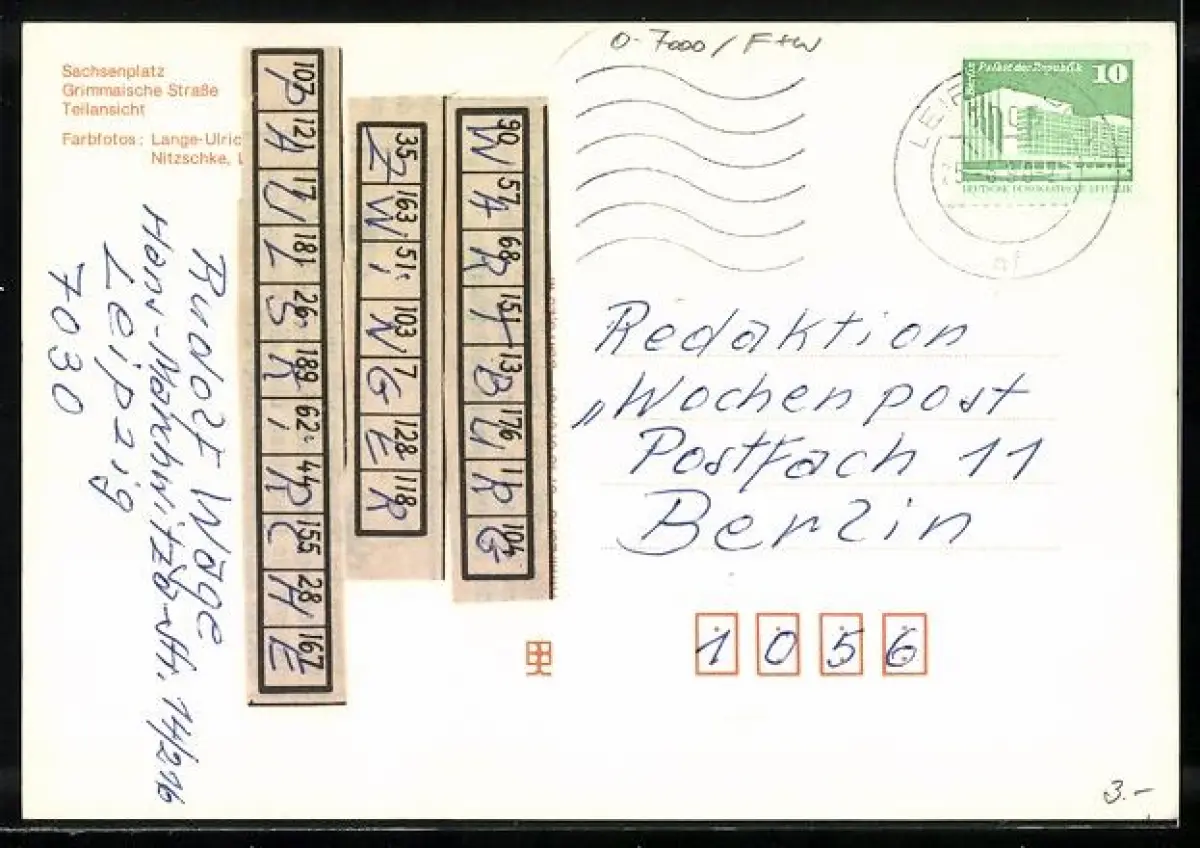 O-7000/F+W
Sachsenplatz
Grimmaische Straße
Teilansicht
Farbfotos: Lange-Ulric
Nitzschke, L
Berlin Palast der Republik 10
DEUTSCHE DEMOKRATISCHE REPUBLIK
107 121 17 181 26 189 62 44 155 28 167
PAULSKIRCHE
35 163 51 103 7 128 118
ZWINGER
90 57 68 151 13 176 1 104
WARTBURG
Redaktion
„Wochenpost
Postfach 11
Berlin
1056
Rudolf Wöge
Hans-Marchwitza-Str. 14/216
Leipzig
7030
3.-